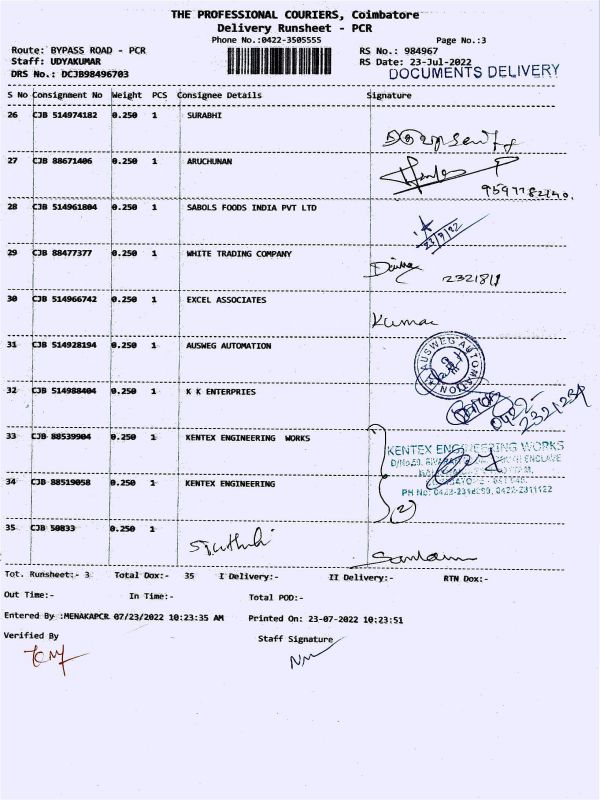 THE PROFESSIONAL COURIERS, Coimbatore
Delivery Runsheet - PCR
Phone No.:0422-3505555
Page No.:3
Route: BYPASS ROAD - PCR
RS No.: 984967
Staff: UDYAKUMAR
RS Date: 23-Jul-2022
DRS No.: DCJB98496703
DOCUMENTS DELIVERY
S No Consignment No Weight PCS Consignee Details Signature
26 CJB 514974182 0.250 1 SURABHI
27 CJB 88671406 0.250 1 ARUCHUNAN
28 CJB 514961804 0.250 1 SABOLS FOODS INDIA PVT LTD
29 CJB 88477377 0.250 1 WHITE TRADING COMPANY
2321811
30 CJB 514966742 0.250 1 EXCEL ASSOCIATES
Kumar
31 CJB 514928194 0.250 1 AUSWEG AUTOMATION
AUSWEG AUTOMATION
32 CJB 514988404 0.250 1 K K ENTERPRIES
0422-
2321234
33 CJB 88539904 0.250 1 KENTEX ENGINEERING WORKS
KENTEX ENGINEERING WORKS
34 CJB 88519058 0.250 1 KENTEX ENGINEERING
(2)
35 CJB 50833 0.250 1
Sruthi
Tot. Runsheet:- 3 Total Dox:- 35 I Delivery:- II Delivery:- RTN Dox:-
Out Time:- In Time:- Total POD:-
Entered By :MENAKAPCR 07/23/2022 10:23:35 AM Printed On: 23-07-2022 10:23:51
Verified By
Staff Signature